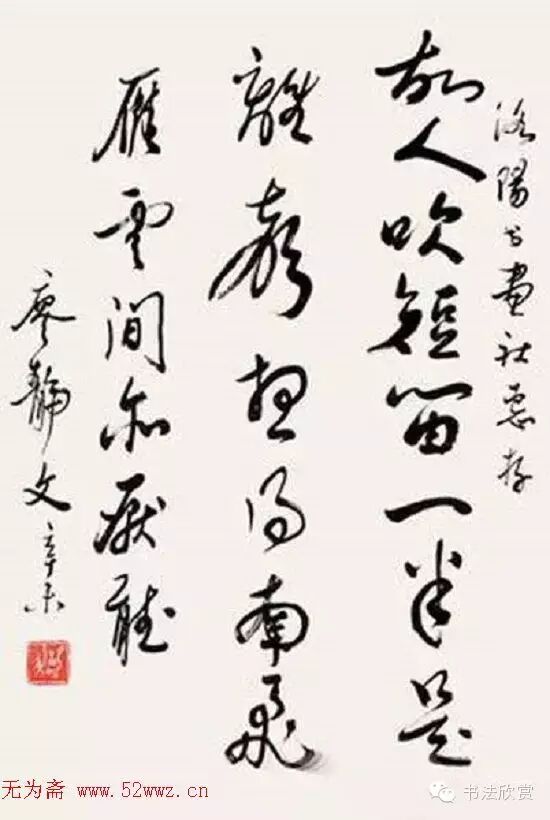 洛陽书畫社惠存
故人吹短笛一半是
離聲想得南飛
雁雲間亦厭聽
廖靜文辛未
无为斋 www.52wwz.cn
书法欣赏